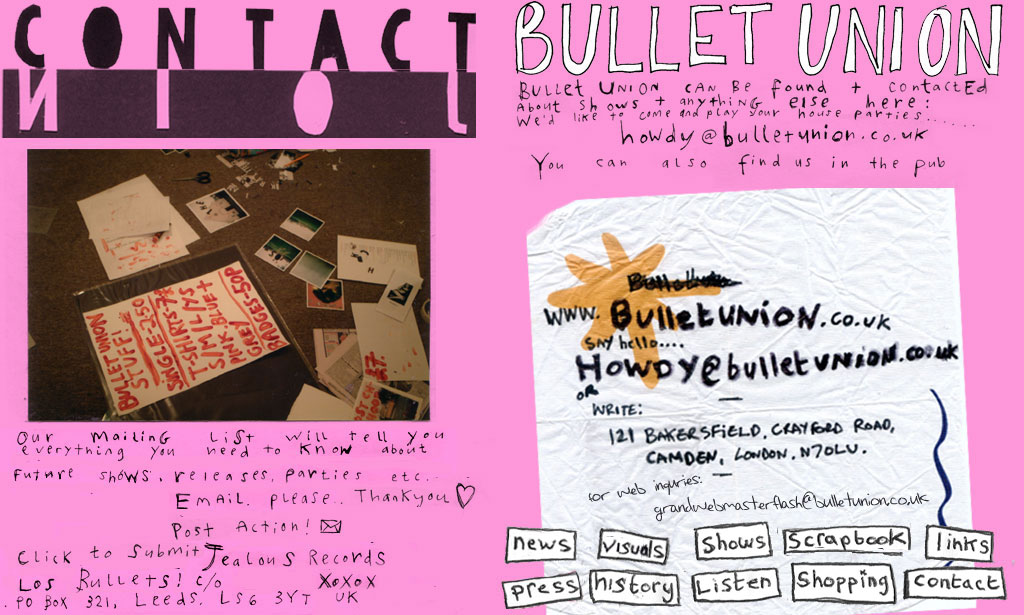 CONTACT
JOIN
BULLET UNION
STUFF!
SINGLE-2.50
T-SHIRTS-7
S/M/L/YS
PINK-BLUE+
GREY
BADGES-50P
Our Mailing List will tell you
everything you need to know about
future shows, releases, parties etc...
Email. please.. Thankyou ♡
Post Action!
Click to Submit Jealous Records
Los Bullets! c/o XoXoX
PO BOX 321, Leeds, LS6 3YT UK
BULLET UNION
Bullet Union can be found + contacted
About shows + anything else here:
We'd like to come and play your house parties......
howdy@bulletunion.co.uk
You can also find us in the pub
www. BulletUNION.co.uk
SAY hello....
Howdy@bulletUNION.co.uk
OR
WRITE:
121 BAKERSFIELD, CRAYFORD ROAD,
CAMDEN, LONDON. N70LU.
for web inquries:
grandwebmasterflash@bulletunion.co.uk
news visuals Shows Scrapbook links
press history Listen Shopping Contact